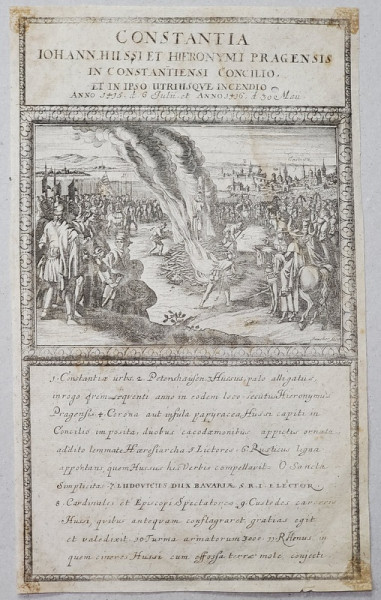 CONSTANTIA
IOHANN.HUSSI ET HIERONYMI PRAGENSIS
IN CONSTANTIENSI CONCILIO,
ET IN IPSO UTRIUSQUE INCENDIO
ANNO 1415. d. 6 Julii et ANNO 1416. d. 30 Maii.
1. Constantiæ urbs. 2. Petershausen. Hussus, palo alligatus
in rogo quem sequenti anno in eodem loco secutus Hieronymus
Pragensis 4. Corona aut infula papyracea Hussi capiti in
Concilio imposita, duobus cacodæmonibus appictis ornata
addito lemmate Hæresiarcha 5. Lictores. 6. Rusticus ligna
apportans, quem Hussus his Verbis compellavit: O Sancta
Simplicitas 7. LUDOVICUS DUX BAVARIÆ S.R.I. ELECTOR
8. Cardinales et Episcopi Spectatores 9. Custodes carceris
Hussi, quibus antequam conflagraret gratias egit
et valedixit 10 Turma armatorum 3000 11 Rhenus, in
quem cineres Hussi cum effossa terræ mole conjecti